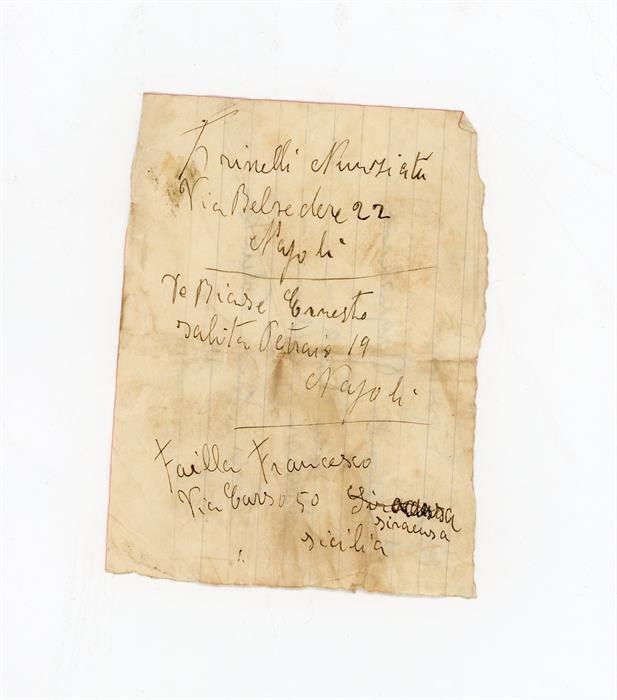 Trinelli Nunziata
Via Belvedere 22
Napoli
De Biase Ernesto
salita Petraio 19
Napoli
Failla Francesco
Via Carso 50
siracusa
sicilia